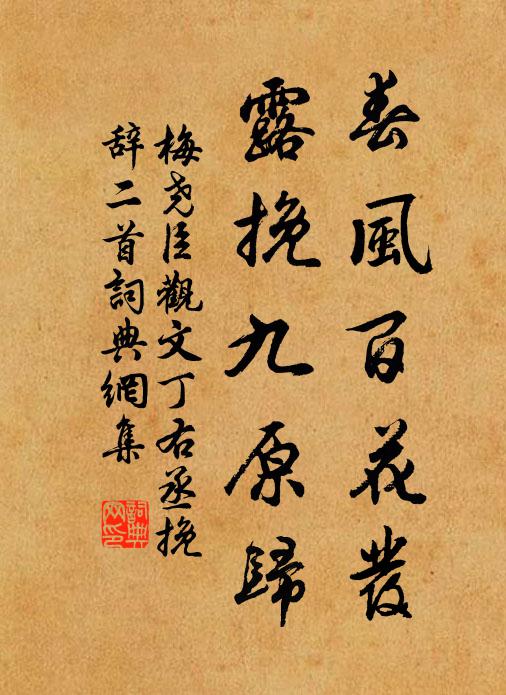 春風百花發
露挽九原歸
梅堯臣觀文丁右丞挽
辞二首詞典網集
詞典网印